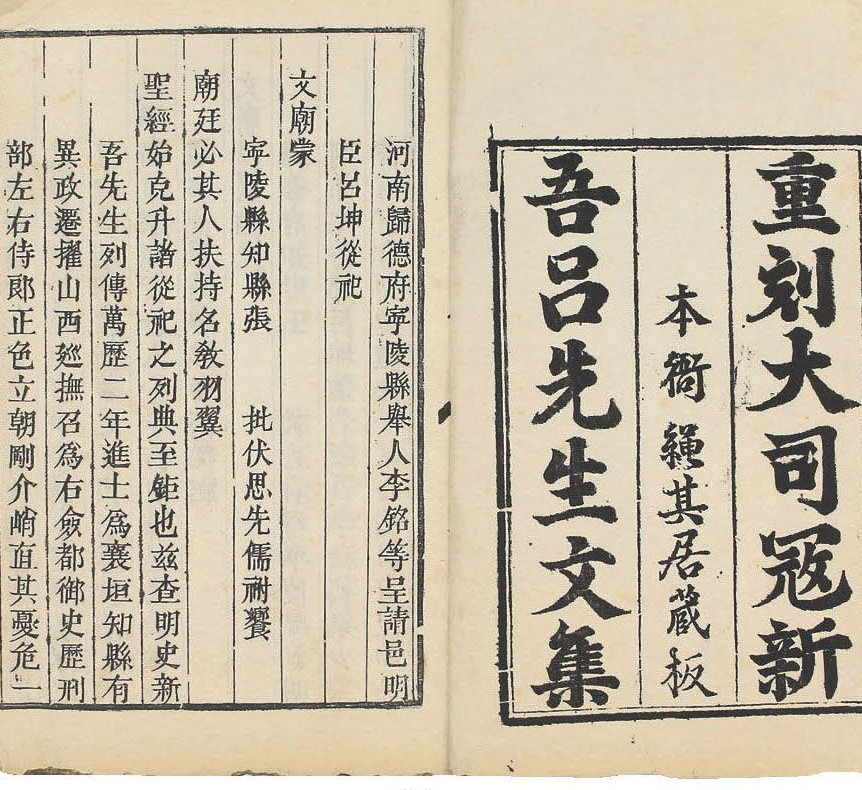 重刻大司冦新
本衙繩其居藏板
吾呂先生文集
河南歸德府寧陵縣舉人李銘等呈請邑明
臣呂坤從祀
文廟蒙
寧陵縣知縣張 批伏思先儒祔饗
廟廷必其人扶持名敎羽翼
聖經始克升諧從祀之列典至鉅也兹查明史新
吾先生列傳萬歷二年進士爲襄垣知縣有
異政遷擢山西廵撫召爲右僉都御史歷刑
部左右侍郎正色立朝剛介峭直其憂危一